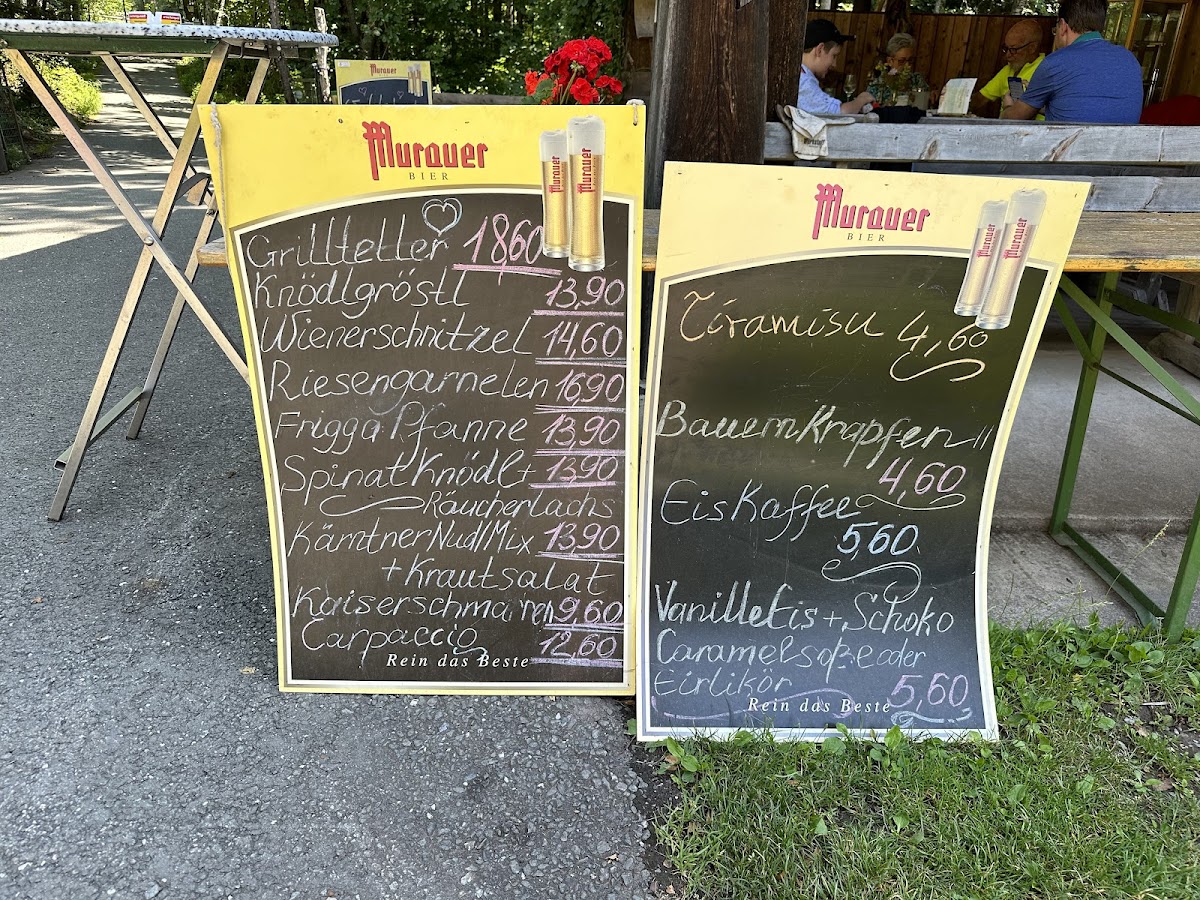 Murauer
Murauer
BIER
Murauer
Murauer
Grillteller 18,60
Knödlgröstl 13,90
Wienerschnitzel 14,60
Riesengarnelen 16,90
Frigga Pfanne 13,90
Spinatknödl + 13,90
Räucherlachs
Kärntner Nudl Mix 13,90
+ Krautsalat
Kaiserschmarren 9,60
Carpaccio 12,60
Rein das Beste
Murauer
BIER
Murauer
Murauer
Tiramisu 4,60
Bauernkrapfen
4,60
Eiskaffee
5,60
Vanilleeis + Schoko
Caramelsoße oder
Eirlikör 5,60
Rein das Beste